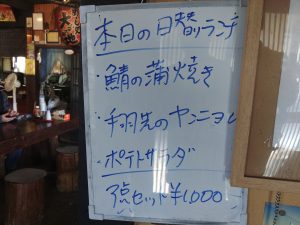 本日の日替りランチ
・鯖の蒲焼き
・手羽先のヤンニョム
・ポテトサラダ
3点セット¥1,000